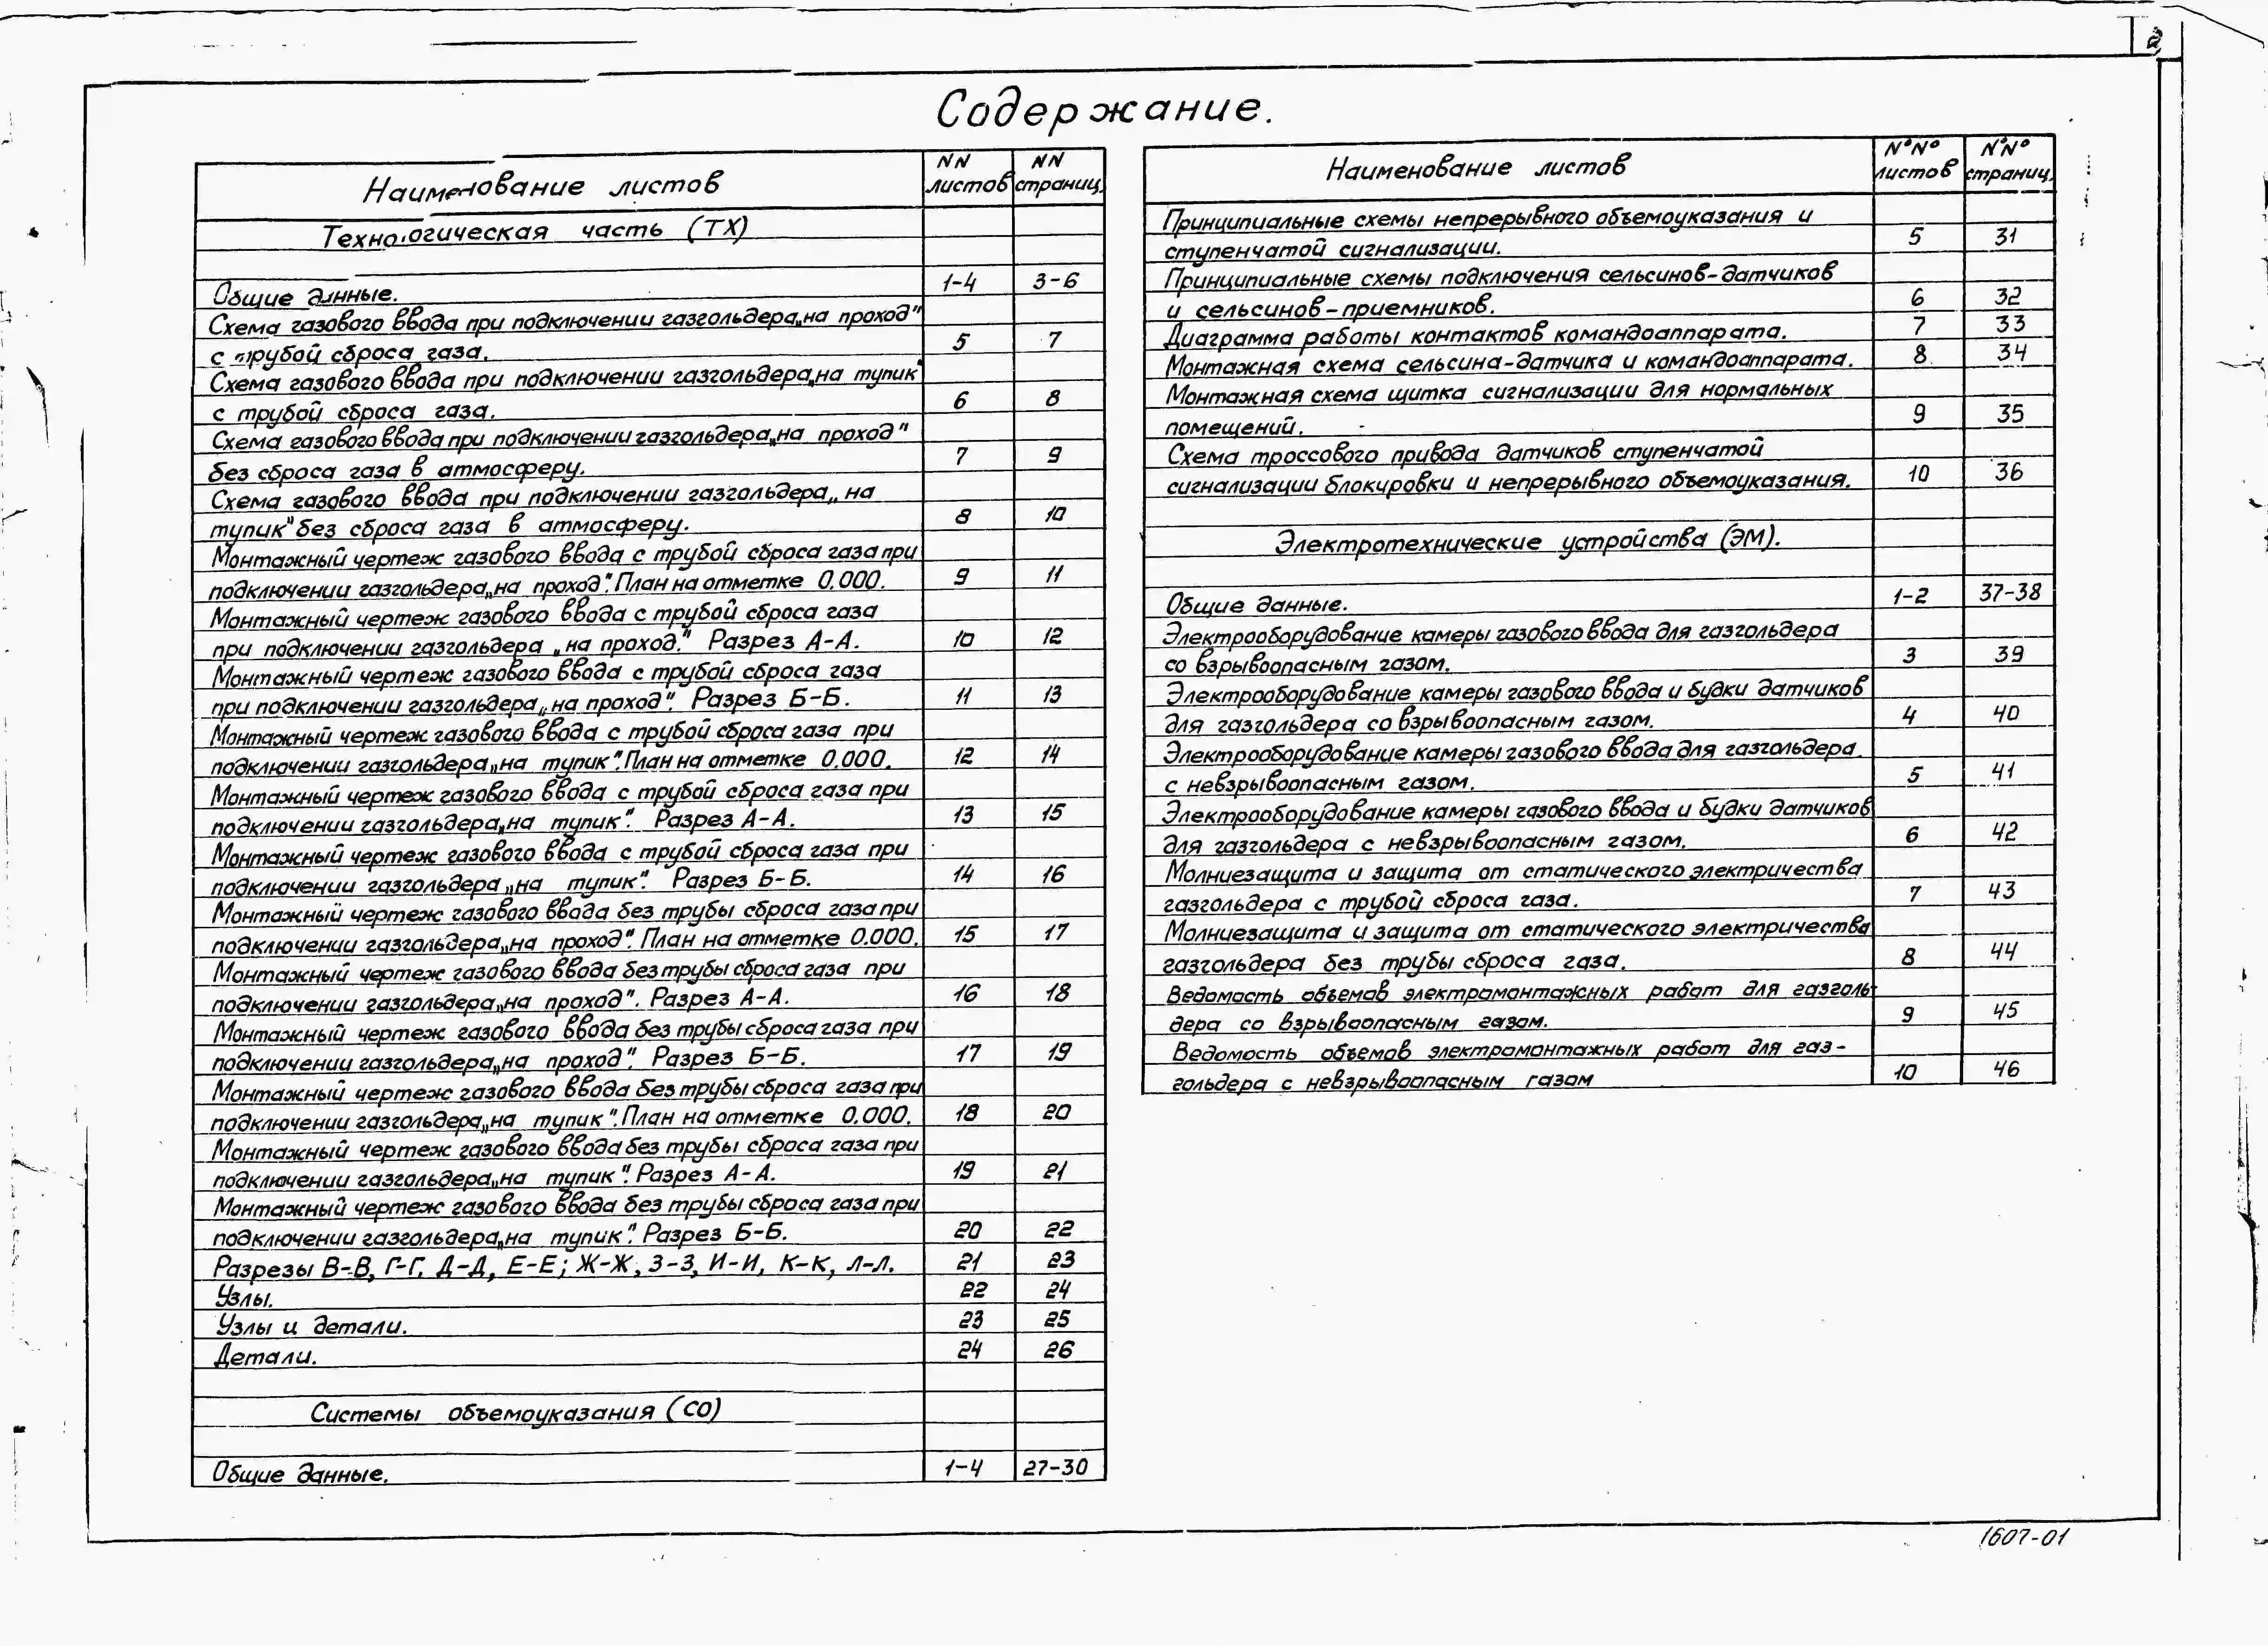 2
Содержание.
Наименование листов NN листов NN страниц.
Технологическая часть (ТХ)
Общие данные. 1-4 3-6
Схема газового ввода при подключении газгольдера „на проход"
с трубой сброса газа. 5 7
Схема газового ввода при подключении газгольдера „на тупик"
с трубой сброса газа. 6 8
Схема газового ввода при подключении газгольдера „на проход"
без сброса газа в атмосферу. 7 9
Схема газового ввода при подключении газгольдера „на
тупик" без сброса газа в атмосферу. 8 10
Монтажный чертеж газового ввода с трубой сброса газа при
подключении газгольдера „на проход". План на отметке 0.000. 9 11
Монтажный чертеж газового ввода с трубой сброса газа
при подключении газгольдера „на проход." Разрез А-А. 10 12
Монтажный чертеж газового ввода с трубой сброса газа
при подключении газгольдера „на проход". Разрез Б-Б. 11 13
Монтажный чертеж газового ввода с трубой сброса газа при
подключении газгольдера „на тупик". План на отметке 0.000. 12 14
Монтажный чертеж газового ввода с трубой сброса газа при
подключении газгольдера „на тупик". Разрез А-А. 13 15
Монтажный чертеж газового ввода с трубой сброса газа при
подключении газгольдера „на тупик". Разрез Б-Б. 14 16
Монтажный чертеж газового ввода без трубы сброса газа при
подключении газгольдера „на проход". План на отметке 0.000. 15 17
Монтажный чертеж газового ввода без трубы сброса газа при
подключении газгольдера „на проход". Разрез А-А. 16 18
Монтажный чертеж газового ввода без трубы сброса газа при
подключении газгольдера „на проход". Разрез Б-Б. 17 19
Монтажный чертеж газового ввода без трубы сброса газа при
подключении газгольдера „на тупик". План на отметке 0.000. 18 20
Монтажный чертеж газового ввода без трубы сброса газа при
подключении газгольдера „на тупик". Разрез А-А. 19 21
Монтажный чертеж газового ввода без трубы сброса газа при
подключении газгольдера „на тупик". Разрез Б-Б. 20 22
Разрезы В-В, Г-Г, Д-Д, Е-Е; Ж-Ж, З-З, И-И, К-К, Л-Л. 21 23
Узлы. 22 24
Узлы и детали. 23 25
Детали. 24 26
Системы объемоуказания (СО)
Общие данные. 1-4 27-30
Наименование листов N°N° листов N°N° страниц.
Принципиальные схемы непрерывного объемоуказания и
ступенчатой сигнализации. 5 31
Принципиальные схемы подключения сельсинов-датчиков
и сельсинов-приемников. 6 32
Диаграмма работы контактов командоаппарата. 7 33
Монтажная схема сельсина-датчика и командоаппарата. 8 34
Монтажная схема щитка сигнализации для нормальных
помещений. 9 35
Схема троссового привода датчиков ступенчатой
сигнализации блокировки и непрерывного объемоуказания. 10 36
Электротехнические устройства (ЭМ).
Общие данные. 1-2 37-38
Электрооборудование камеры газового ввода для газгольдера
со взрывоопасным газом. 3 39
Электрооборудование камеры газового ввода и будки датчиков
для газгольдера со взрывоопасным газом. 4 40
Электрооборудование камеры газового ввода для газгольдера
с невзрывоопасным газом. 5 41
Электрооборудование камеры газового ввода и будки датчиков
для газгольдера с невзрывоопасным газом. 6 42
Молниезащита и защита от статического электричества
газгольдера с трубой сброса газа. 7 43
Молниезащита и защита от статического электричества
газгольдера без трубы сброса газа. 8 44
Ведомость объемов электромонтажных работ для газголь
дера со взрывоопасным газом. 9 45
Ведомость объемов электромонтажных работ для газ-
гольдера с невзрывоопасным газом 10 46
1607-01